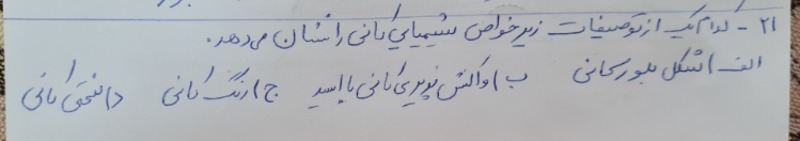 ۲۱ - کدام یک از توصیفات زیر خواص شیمیایی کانی را نشان می دهد.
الف) شکل بلور کانی ب) واکنش پذیری کانی با اسید ج) رنگ کانی د) سختی کانی